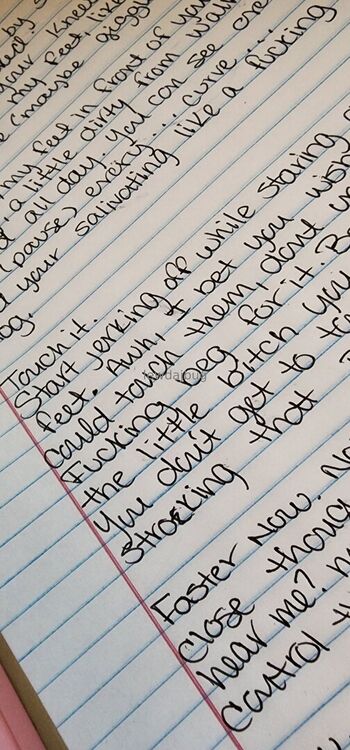 your knees
my feet, like
(maybe giggle
my feet in front of you
a little dirty from walk
all day. You can see
(pause) every... curve...
your salivating like a fucking
og.
Touch it.
Start jerking off while staring
feet. Awh, I bet you wish
could touch them, dont
Fucking beg for it.
the little bitch you
You don't get to
stroking that
Faster now.
Close thoug
hear me?
control
lewdaloug